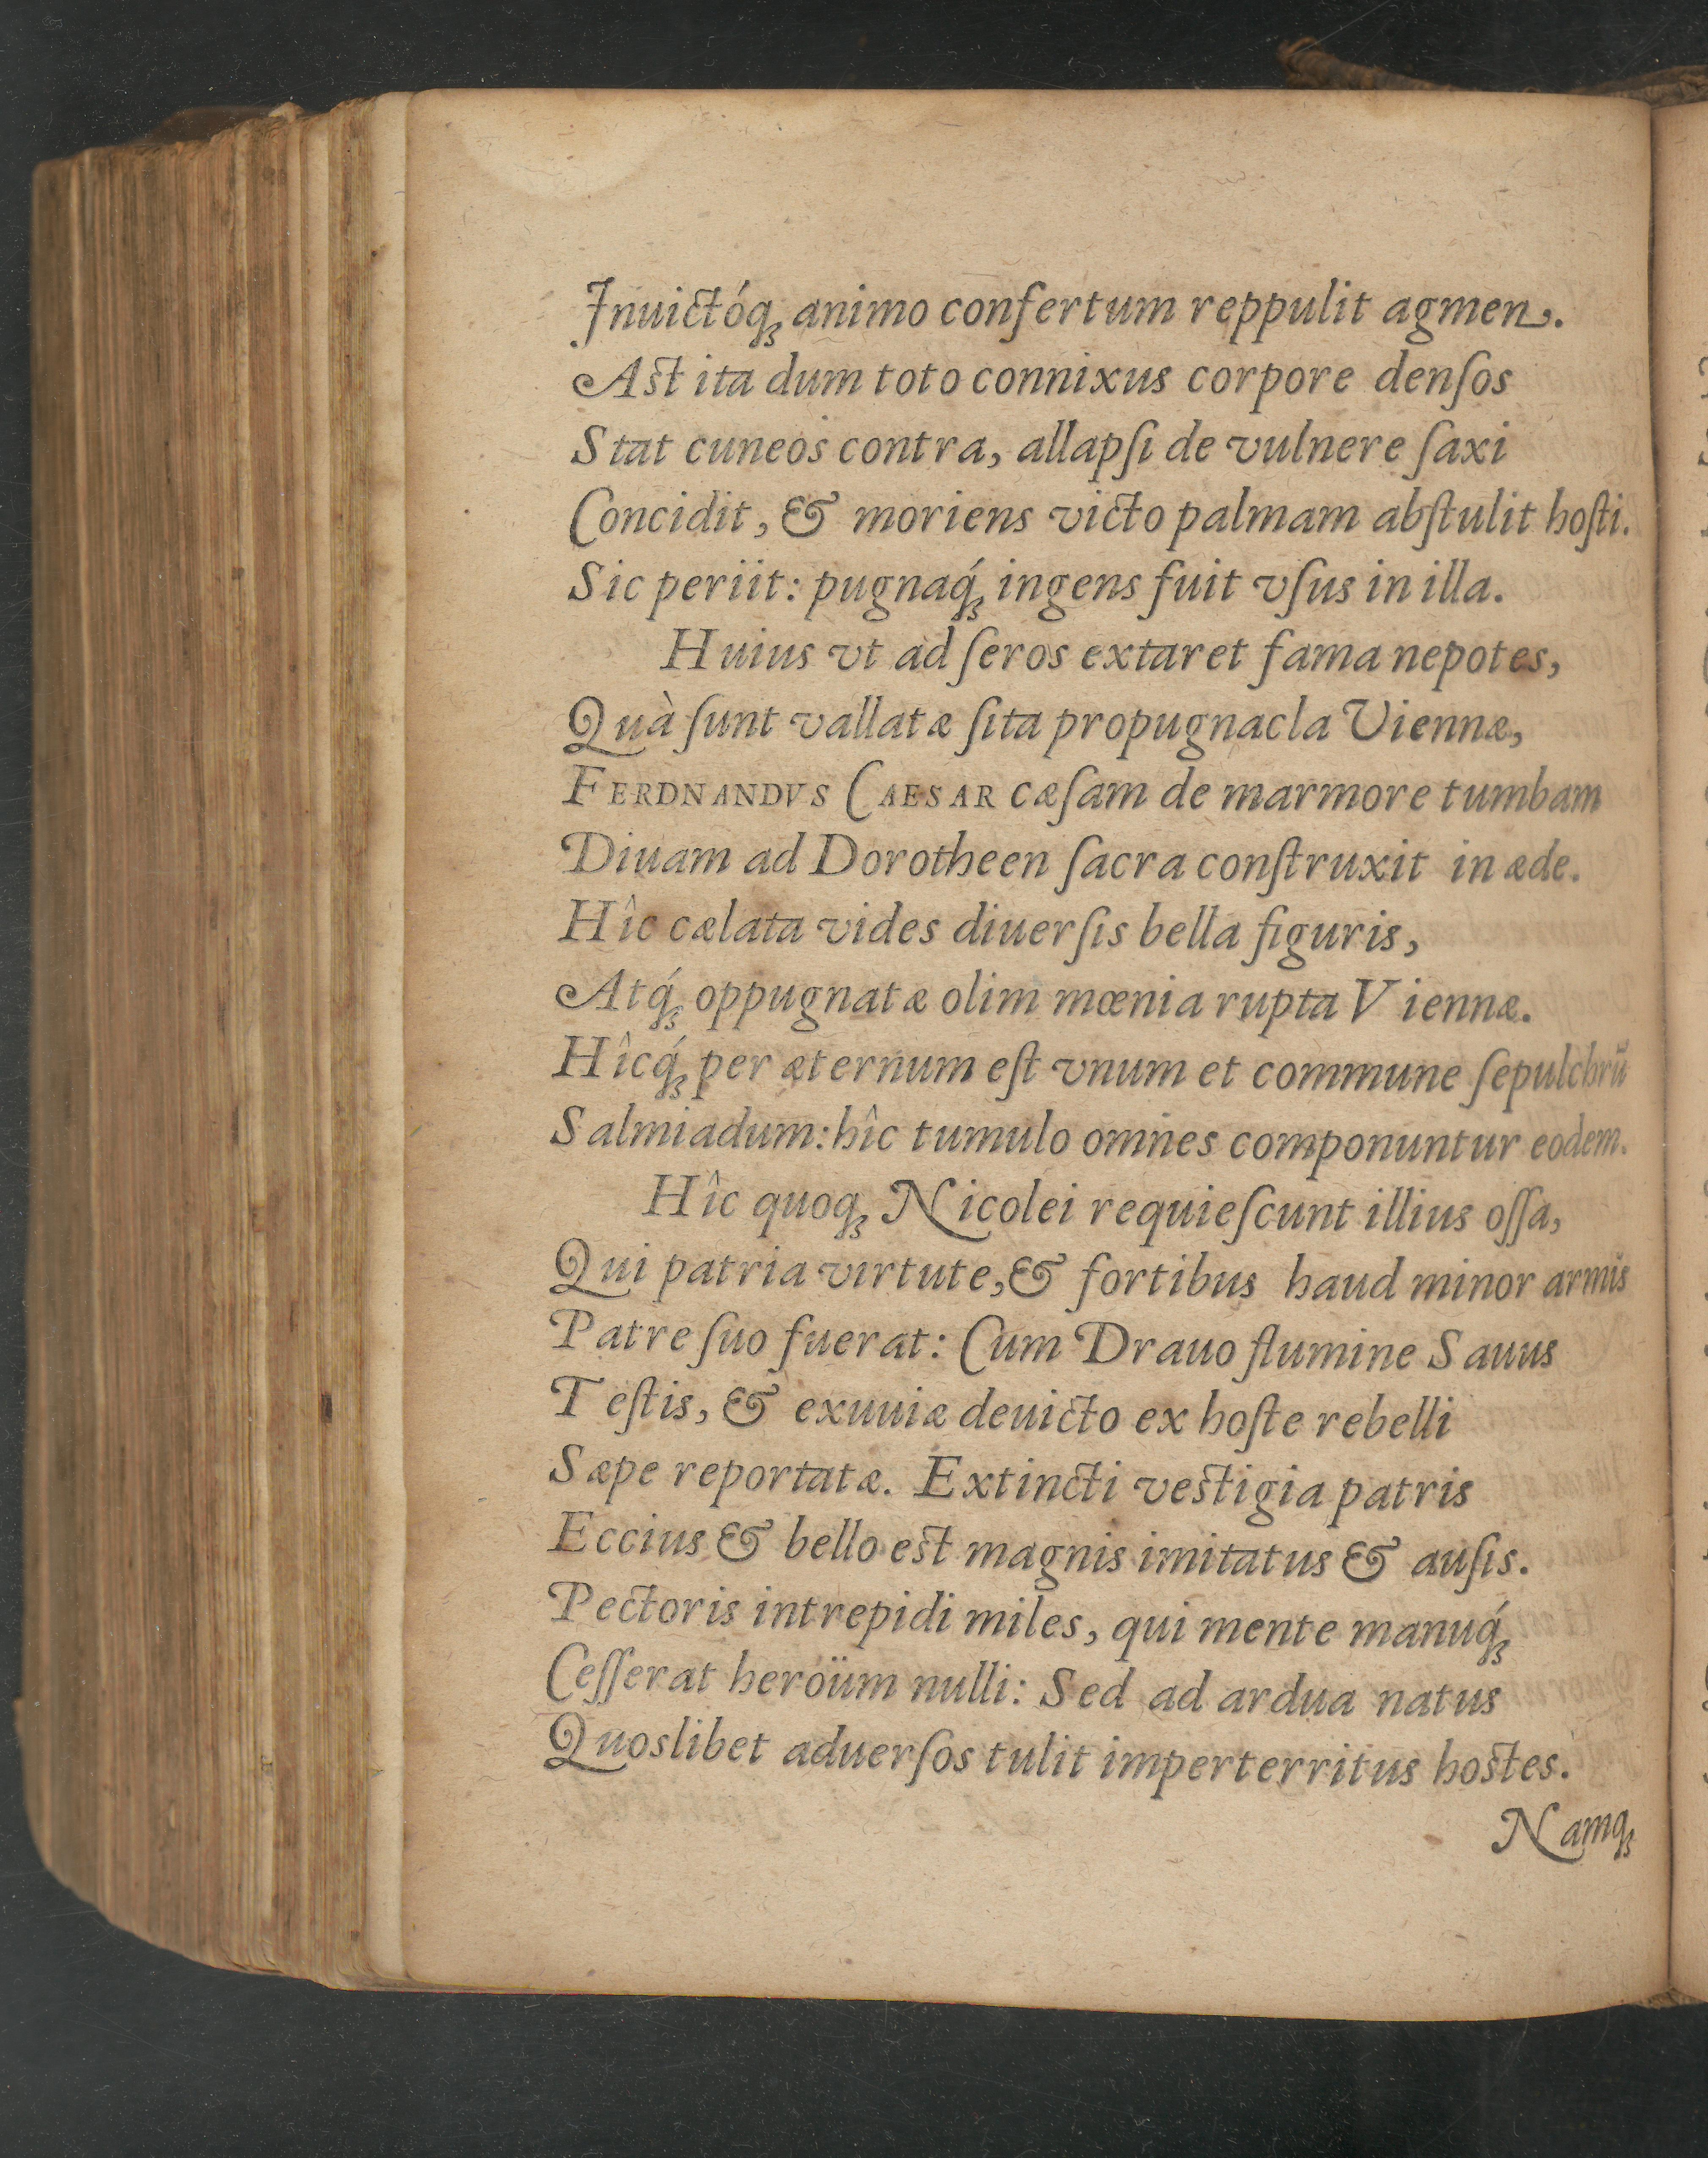 Inuictóq́ꝫ animo confertum reppulit agmen.
Ast ita dum toto connixus corpore denſos
Stat cuneos contra, allapſi de vulnere ſaxi
Concidit, & moriens victo palmam abſtulit hoſti.
Sic periit: pugnaq́ꝫ ingens fuit vſus in illa.
Huius vt ad ſeros extaret fama nepotes,
Quà ſunt vallatæ ſita propugnacla Viennæ,
FERDNANDVS CAESAR cæſam de marmore tumbam
Diuam ad Dorotheen ſacra conſtruxit in æde.
Hîc cælata vides diuerſis bella figuris,
Atq́ꝫ oppugnatæ olim mœnia rupta Viennæ.
Hîcq́ꝫ per æternum eſt vnum et commune ſepulchrũ
Salmiadum: hîc tumulo omnes componuntur eodem.
Hîc quoqꝫ Nicolei requieſcunt illius oſſa,
Qui patria virtute, & fortibus haud minor armis
Patre ſuo fuerat: Cum Drauo flumine Sauus
Teſtis, & exuuiæ deuicto ex hoſte rebelli
Sæpe reportatæ. Extincti vestigia patris
Eccius & bello est magnis imitatus & auſis.
Pectoris intrepidi miles, qui mente manuq́ꝫ
Ceſſerat heroüm nulli: Sed ad ardua natus
Quoslibet aduerſos tulit imperterritus hostes.
Namqꝫ